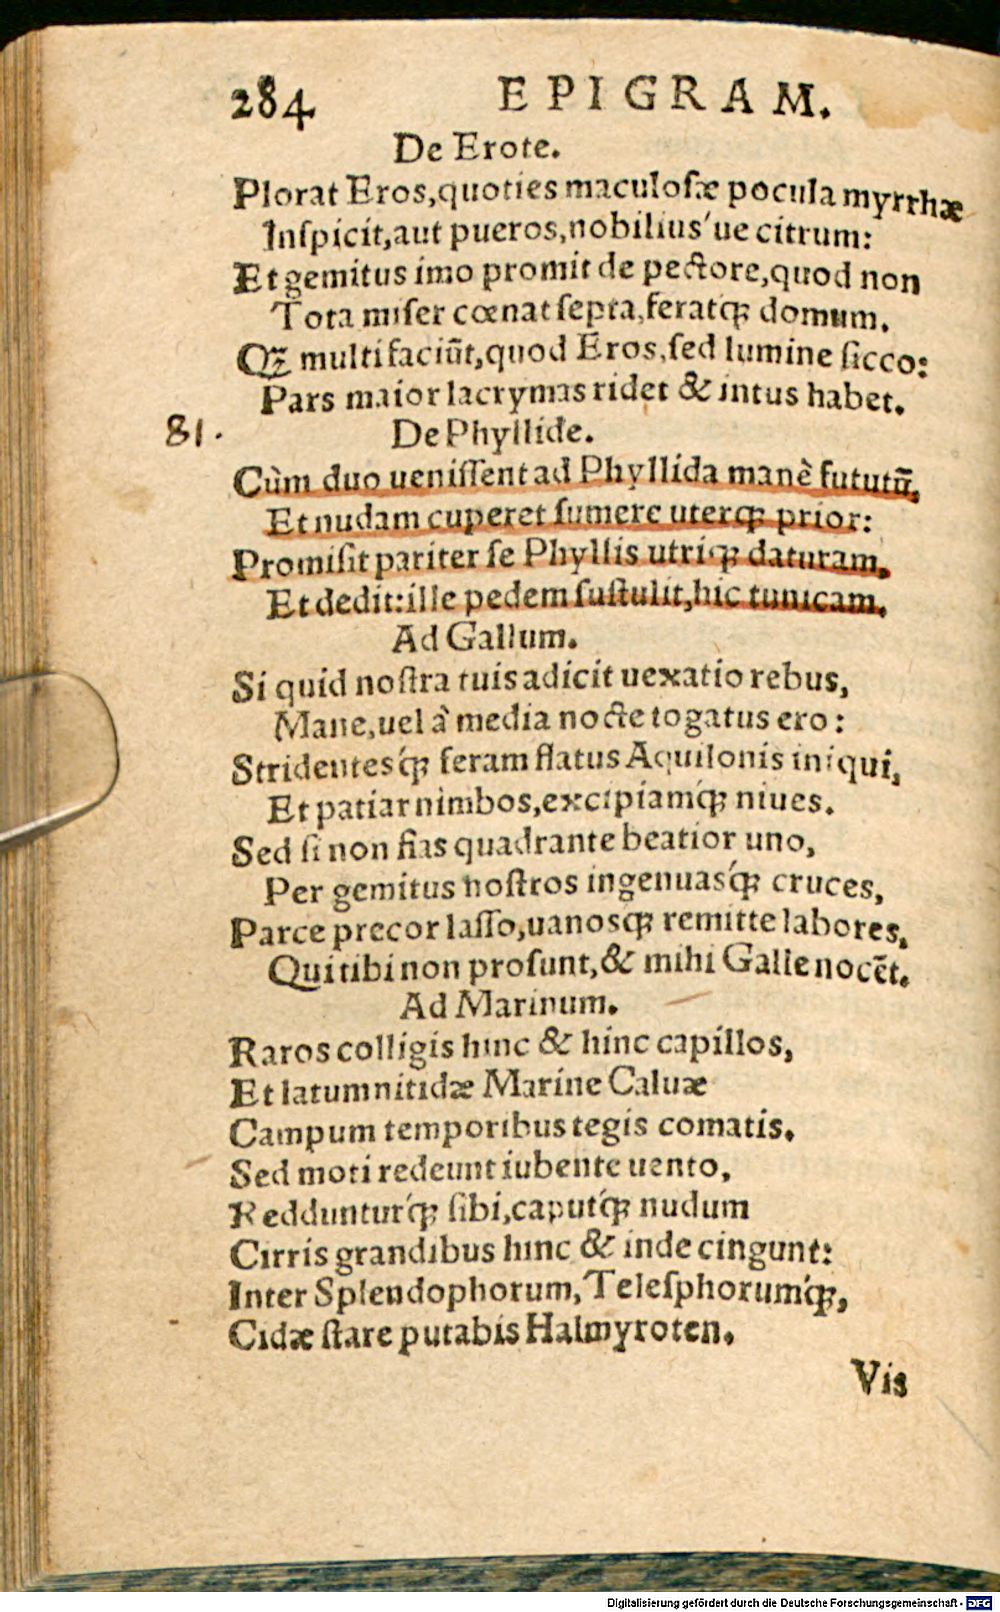 284 EPIGRAM.
De Erote.
Plorat Eros,quoties maculosæ pocula myrrhæ
Inspicit,aut pueros,nobilius'ue citrum:
Et gemitus imo promit de pectore,quod non
Tota miser cœnat septa,feratq́ꝫ domum.
Qꝫ multi faciũt,quod Eros,sed lumine sicco:
Pars maior lacrymas ridet & intus habet.
81.
De Phyllide.
Cùm duo uenissent ad Phyllida manè fututũ,
Et nudam cuperet sumere uterqꝫ prior:
Promisit pariter se Phyllis utriqꝫ daturam,
Et dedit:ille pedem sustulit,hic tunicam.
Ad Gallum.
Si quid nostra tuis adicit uexatio rebus,
Mane,uel à media nocte togatus ero:
Stridentesq́ꝫ feram flatus Aquilonis iniqui,
Et patiar nimbos,excipiamq́ꝫ niues.
Sed si non fias quadrante beatior uno,
Per gemitus nostros ingenuasq́ꝫ cruces,
Parce precor lasso,uanosqꝫ remitte labores,
Qui tibi non prosunt,& mihi Galle nocẽt.
Ad Marinum.
Raros colligis hinc & hinc capillos,
Et latum nitidæ Marine Caluæ
Campum temporibus tegis comatis.
Sed moti redeunt iubente uento,
Reddunturq́ꝫ sibi,caputq́ꝫ nudum
Cirris grandibus hinc & inde cingunt:
Inter Splendophorum,Telesphorumq́ꝫ,
Cidæ stare putabis Halmyroten.
Vis
Digitalisierung gefördert durch die Deutsche Forschungsgemeinschaft - DFG